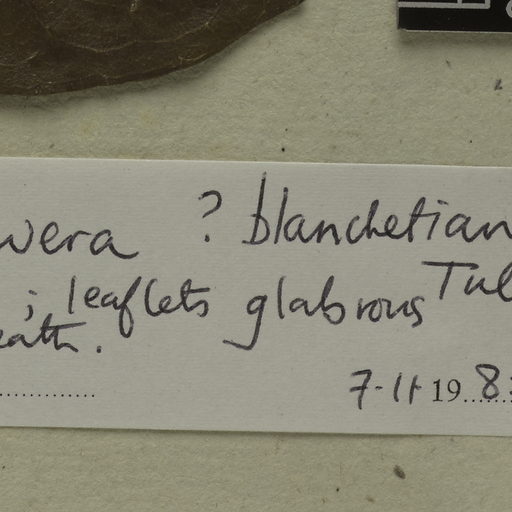 wera ? blanchetian
; leaflets glabrous Tul
eath.
7-11 19 8